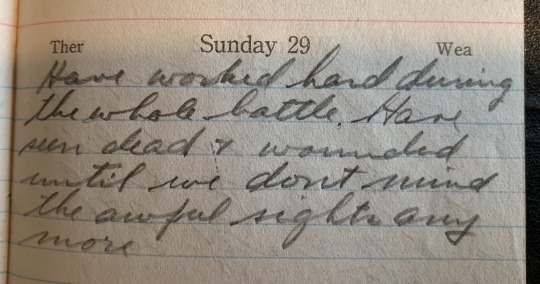 Ther Sunday 29 Wea
Have worked hard during
the whole battle. Have
seen dead & wounded
until we dont mind
the awful sights any
more